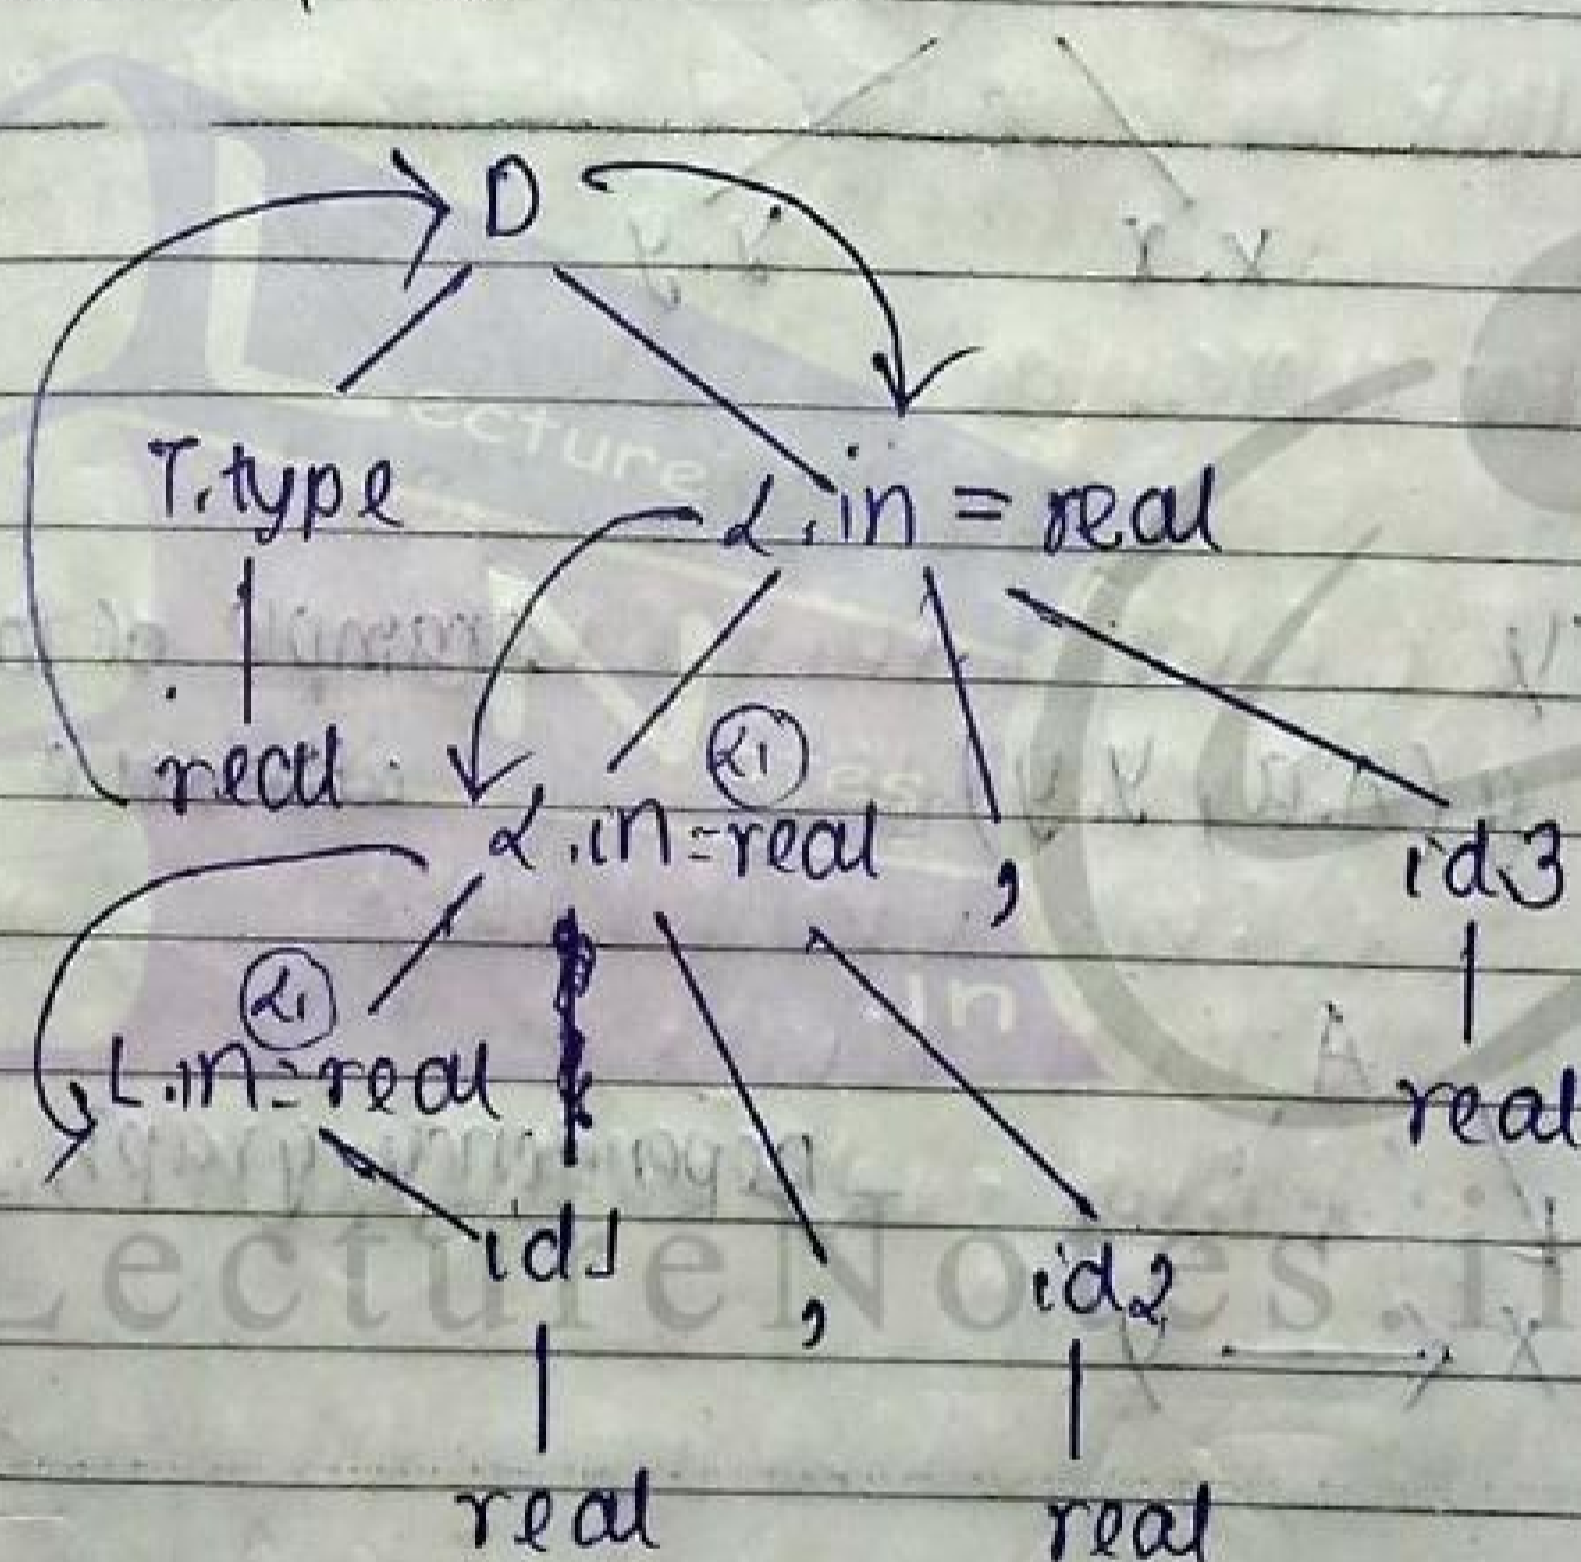 D
T.type
L.in = real
real
L1
L.in = real
,
id3
L1
L.in = real
real
id1
,
id2
real
real
Lecture
Notes
.In
LectureNotes.in